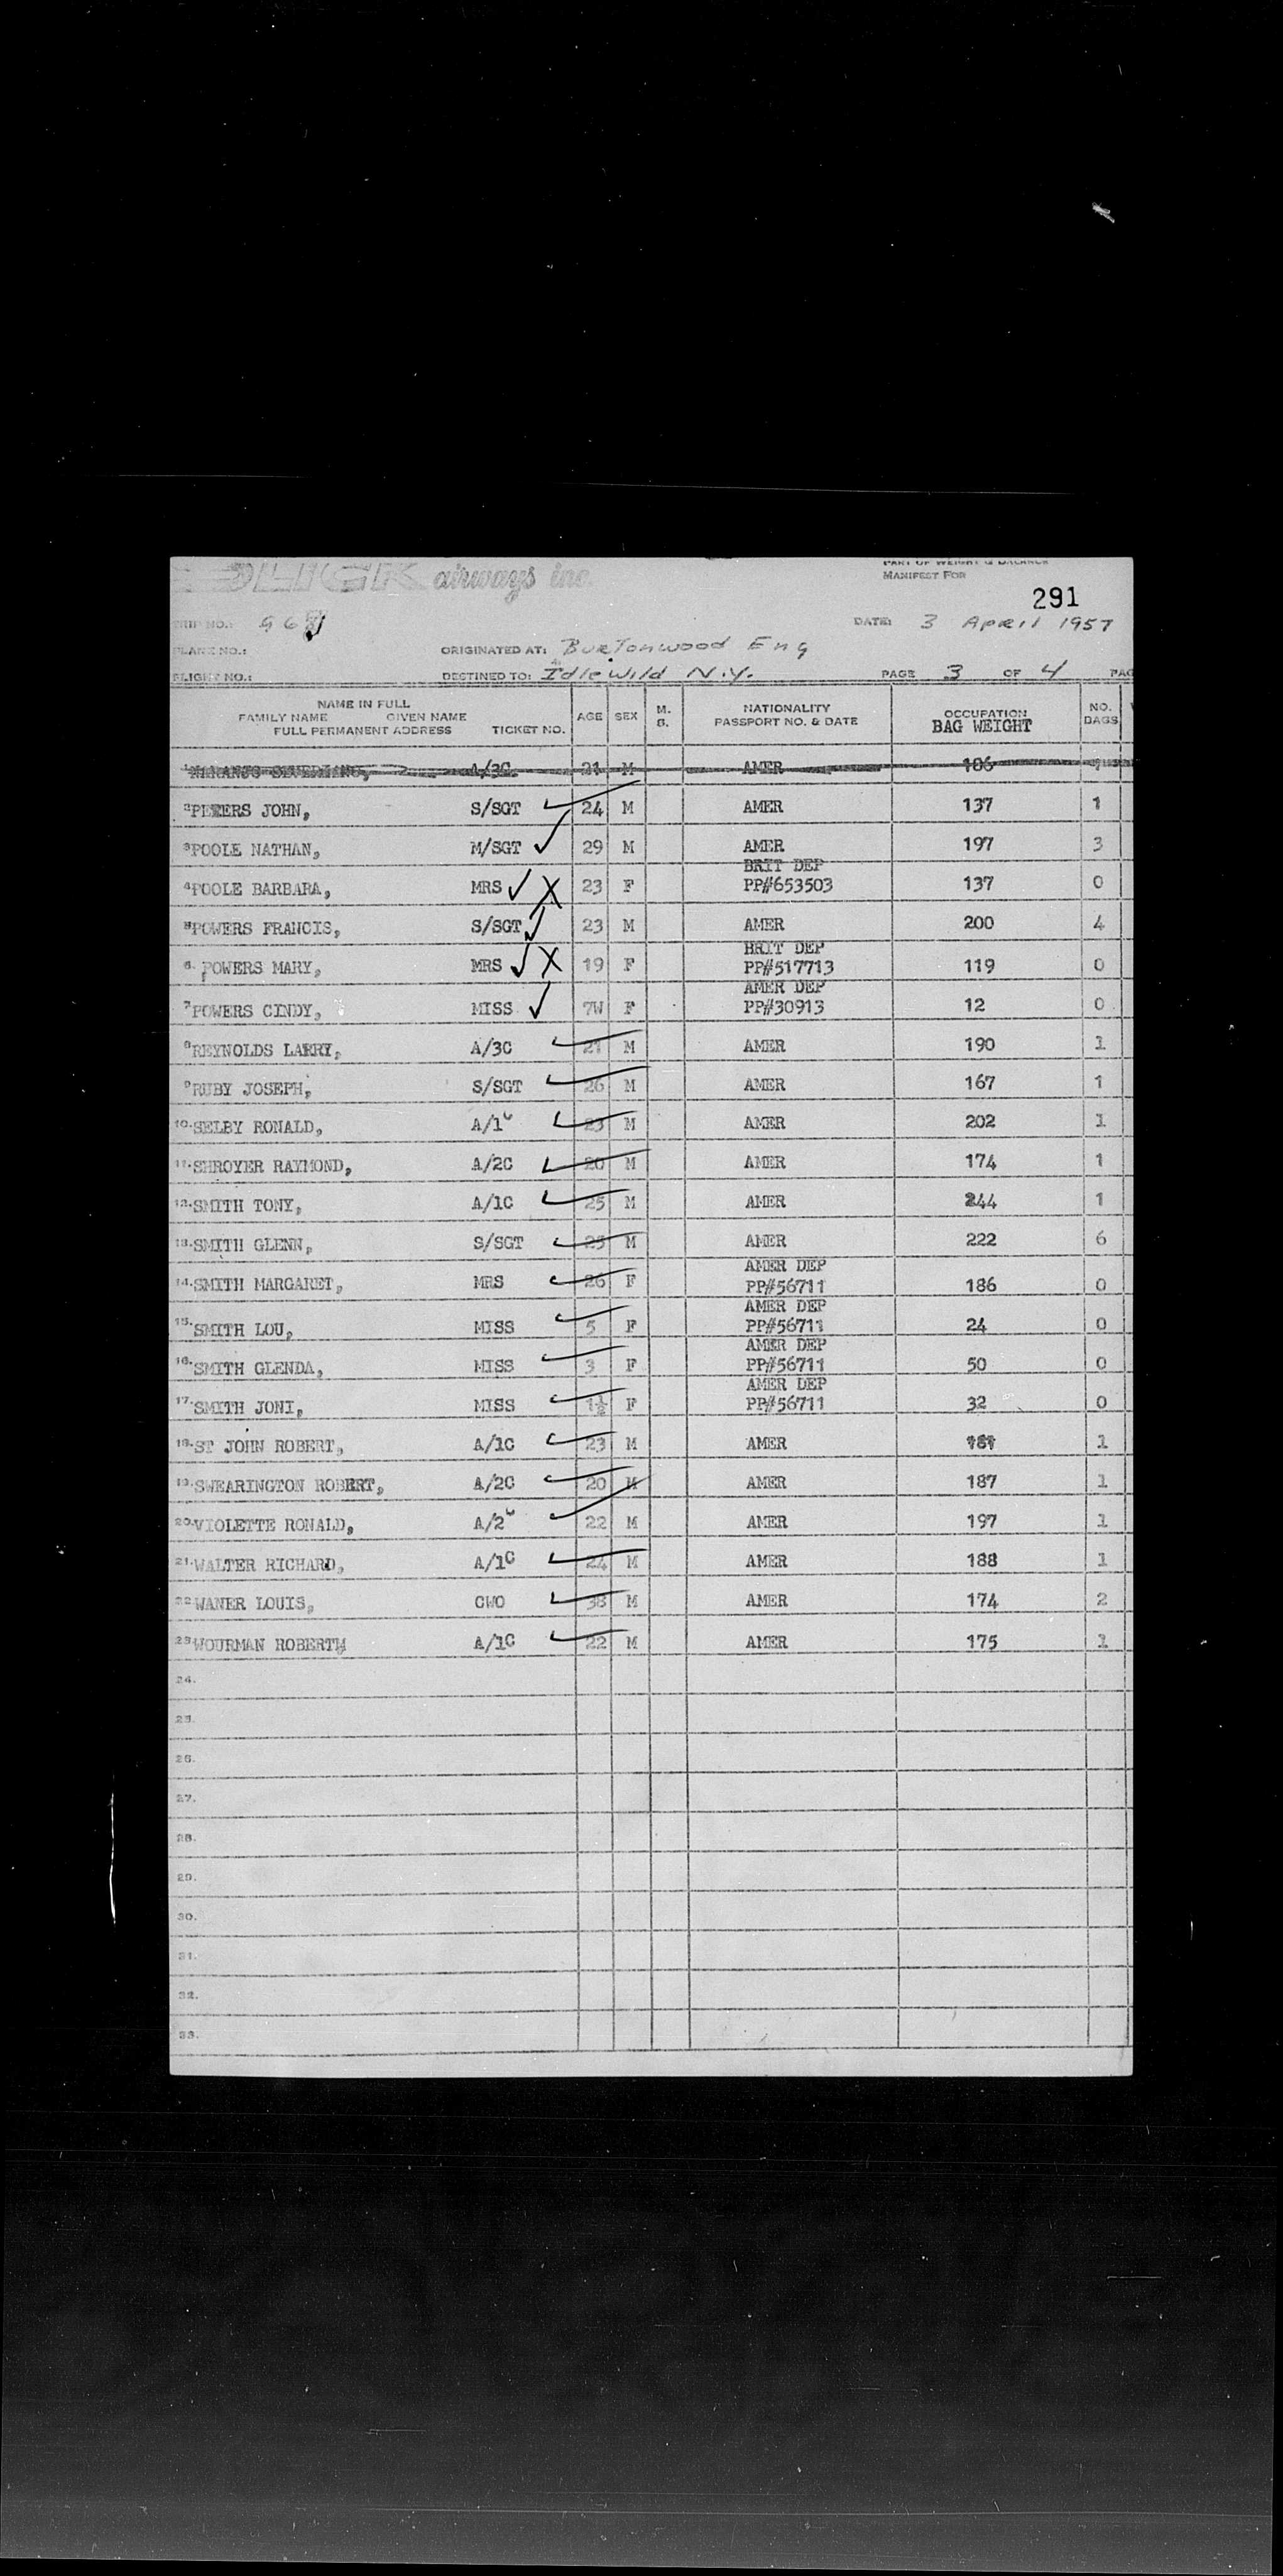 SLICK airways inc.
PART OF WEIGHT & BALANCE
MANIFEST FOR
291
TRIP NO.: 968
DATE: 3 April 1957
PLANE NO.:
ORIGINATED AT: Burtonwood Eng
FLIGHT NO.:
DESTINED TO: Idlewild N.Y.
PAGE 3 OF 4
NAME IN FULL
FAMILY NAME GIVEN NAME
FULL PERMANENT ADDRESS TICKET NO. AGE SEX M. S. NATIONALITY PASSPORT NO. & DATE OCCUPATION BAG WEIGHT NO. BAGS
1. NARANJO A/3C 21 M AMER 186
2. PETERS JOHN, S/SGT 24 M AMER 137 1
3. POOLE NATHAN, M/SGT 29 M AMER 197 3
BRIT DEP
4. POOLE BARBARA, MRS X 23 F PP#653503 137 0
5. POWERS FRANCIS, S/SGT 23 M AMER 200 4
BRIT DEP
6. POWERS MARY, MRS X 19 F PP#517713 119 0
AMER DEP
7. POWERS CINDY, MISS 7W F PP#30913 12 0
8. REYNOLDS LARRY, A/3C 21 M AMER 190 1
9. RUBY JOSEPH, S/SGT 26 M AMER 167 1
10. SELBY RONALD, A/1C 23 M AMER 202 1
11. SHROYER RAYMOND, A/2C 20 M AMER 174 1
12. SMITH TONY, A/1C 25 M AMER 244 1
13. SMITH GLENN, S/SGT 25 M AMER 222 6
AMER DEP
14. SMITH MARGARET, MRS 26 F PP#56711 186 0
AMER DEP
15. SMITH LOU, MISS 5 F PP#56711 24 0
AMER DEP
16. SMITH GLENDA, MISS 3 F PP#56711 50 0
AMER DEP
17. SMITH JONI, MISS 1½ F PP#56711 32 0
18. ST JOHN ROBERT, A/1C 23 M AMER 181 1
19. SWEARINGTON ROBERT, A/2C 20 M AMER 187 1
20. VIOLETTE RONALD, A/2C 22 M AMER 197 1
21. WALTER RICHARD, A/1C 24 M AMER 188 1
22. WANER LOUIS, CWO 38 M AMER 174 2
23. WOURMAN ROBERT A/1C 22 M AMER 175 1
24.
25.
26.
27.
28.
29.
30.
31.
32.
33.